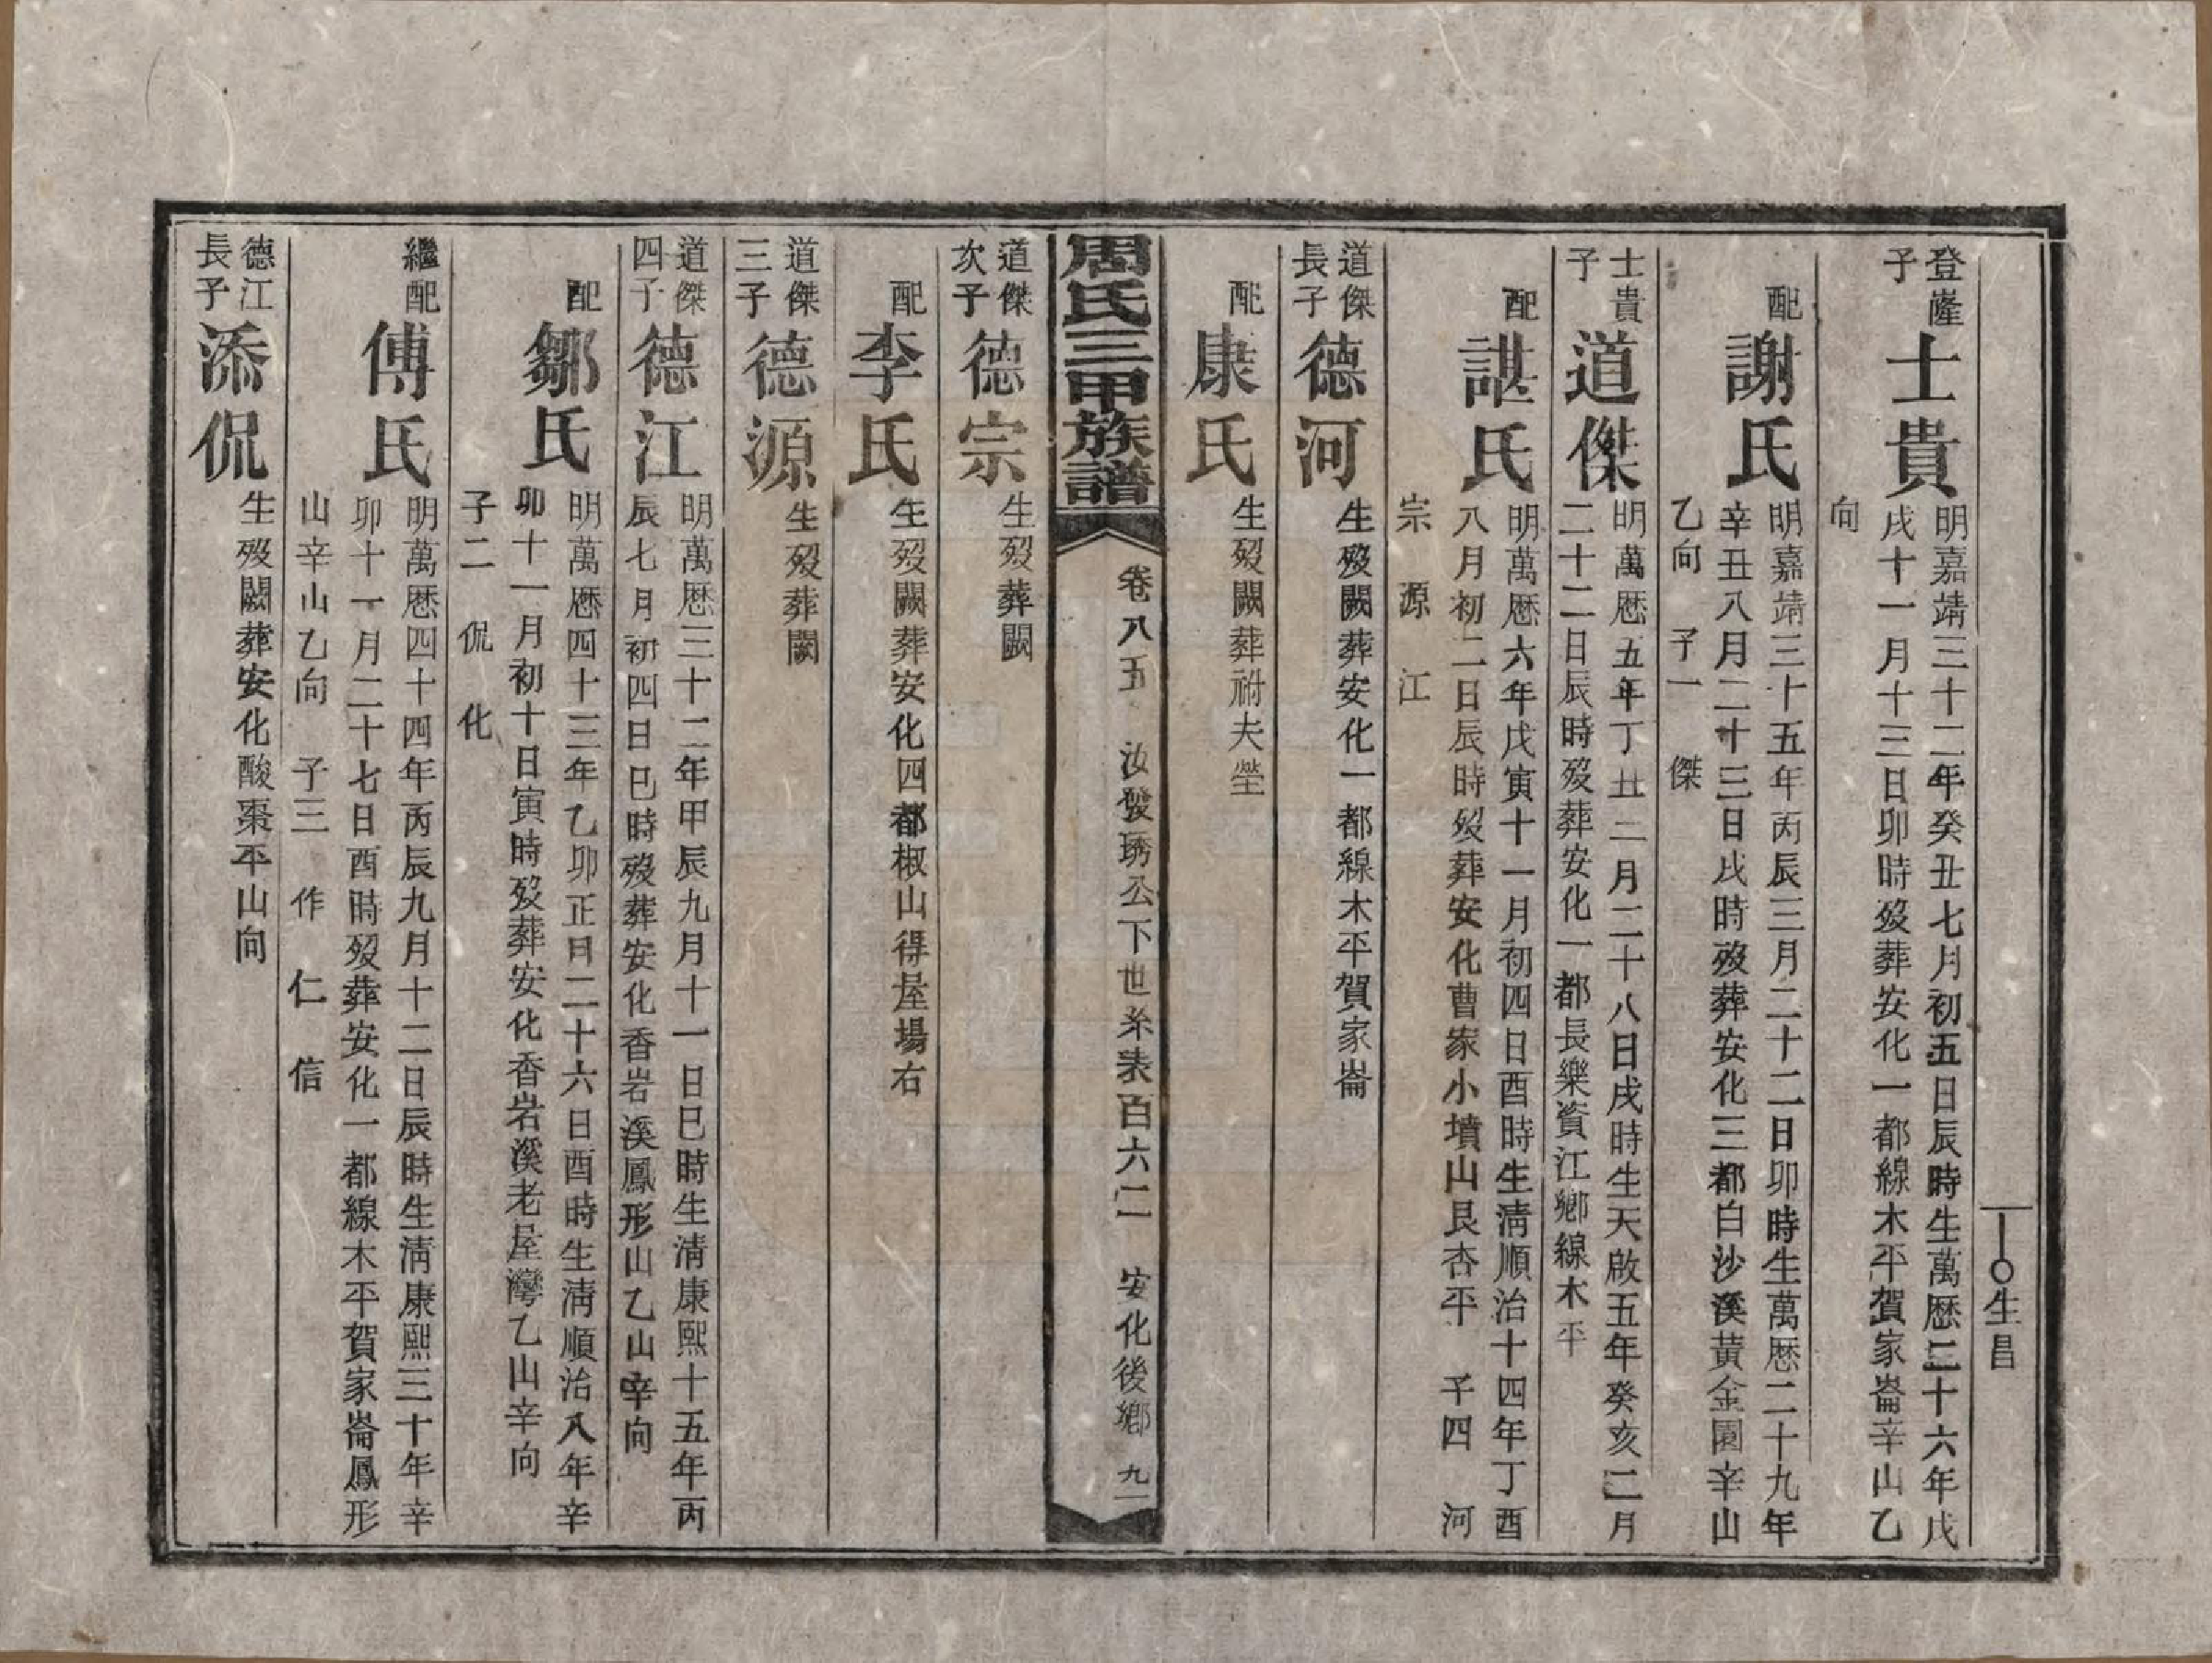 生昌
登嶐子
士貴
明嘉靖三十二年癸丑七月初五日辰時生萬歷二十六年戊
戌十一月十三日卯時歿葬安化一都線木平賀家崙辛山乙
向
配
謝氏
明嘉靖三十五年丙辰三月二十二日卯時生萬歷二十九年
辛丑八月二十三日戌時歿葬安化三都白沙溪黃金園辛山
乙向 子一 傑
士貴子
道傑
明萬歷五年丁丑二月二十八日戌時生天啟五年癸亥二月
二十二日辰時歿葬安化一都長樂資江鄉線木平
配
諶氏
明萬歷六年戊寅十一月初四日酉時生清順治十四年丁酉
八月初二日辰時歿葬安化曹家小墳山艮杏平 子四 河
宗 源 江
道傑長子
德河
生歿闕葬安化一都線木平賀家崙
配
康氏
生歿闕葬祔夫塋
周氏三甲族譜
卷八五 汝發琇公下世系表百六二 安化後鄉 九一
道傑次子
德宗
生歿葬闕
配
李氏
生歿闕葬安化四都椒山得屋場右
道傑三子
德源
生歿葬闕
道傑四子
德江
明萬歷三十二年甲辰九月十一日巳時生清康熙十五年丙
辰七月初四日巳時歿葬安化香岩溪鳳形山乙山辛向
配
鄒氏
明萬歷四十三年乙卯正月二十六日酉時生清順治八年辛
卯十一月初十日寅時歿葬安化香岩溪老屋灣乙山辛向
子二 侃 化
繼配
傅氏
明萬歷四十四年丙辰九月十二日辰時生清康熙三十年辛
卯十一月二十七日酉時歿葬安化一都線木平賀家崙鳳形
山辛山乙向 子三 作 仁 信
德江長子
添侃
生歿闕葬安化酸棗平山向